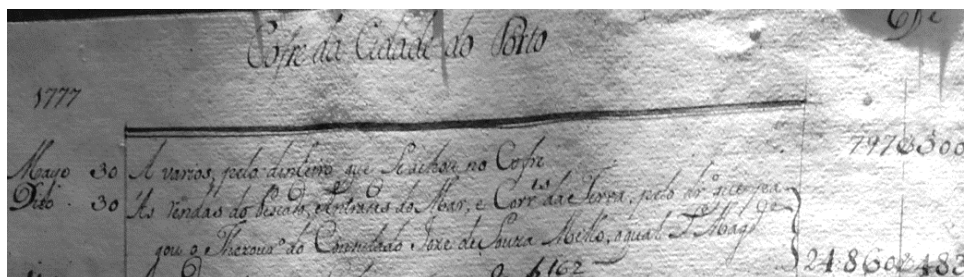 Cofre da Cidade do Porto
1777
Mayo 30 A varios, pelo dinheiro que Se achou no Cofre 797$300
Dito 30 Ás Vendas do Pescado, Entradas do Mar, e Corr.es da Terra, pelo dr.o que pa
gou o Thezour.o do Consulado Joze de Souza Mello, o qual 218$60